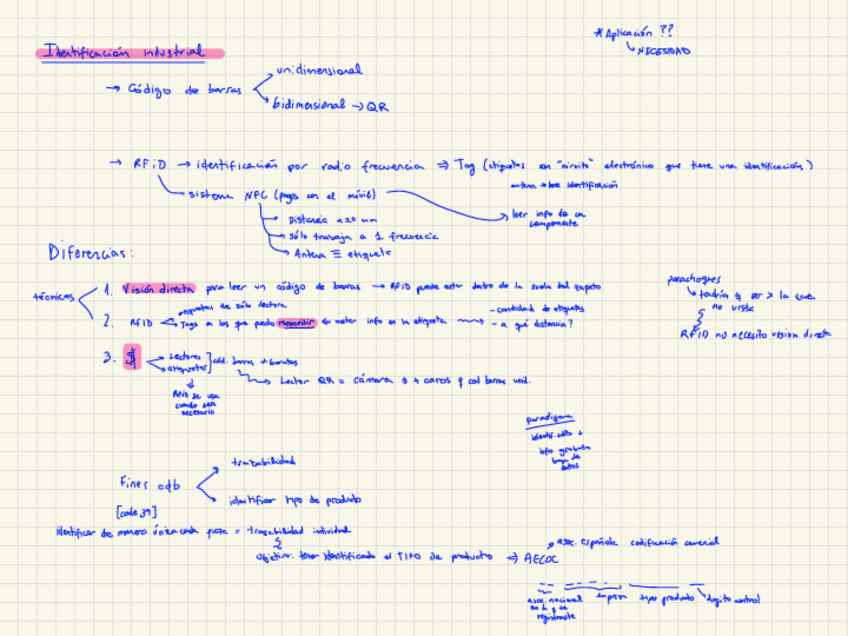 Identificación industrial
* Aplicación ??
↳ NECESIDAD
→ Código de barras
unidimensional
bidimensional → QR
→ RFiD → identificación por radio frecuencia ⇒ Tag (etiquetas con "circuito" electrónico que tiene una identificación)
antena → lee identificación
sistema NFC (pago con el móvil)
leer info de un componente
Distancia <20 mm
sólo trabaja a 1 frecuencia
Antena ≡ etiqueta
Diferencias:
técnicas
1. Visión directa para leer un código de barras → RFiD puede estar dentro de la suela del zapato
etiquetas de sólo lectura
2. RFID
Tags en los que puedo reescribir ⇔ meter info en la etiqueta
- cantidad de etiquetas
- a qué distancia?
parachoques
↳ tendría q ser x la cara no vista
RFiD no necesito visión directa
3. $
→ Lectores
→ etiquetas
cód. barras + baratos
→ Lector QR = cámara → + caros q cod barras unid.
RFiD se usa cuando sea necesario
paradigma
identif. cdb +
info grabada
base de
datos
Fines cdb
trazabilidad
identificar tipo de producto
[code 39]
identificar de manera única cada pieza = trazabilidad individual
objetivo: tener identificado el TIPO de producto ⇒ AECOC
asoc. española codificación comercial
asoc. nacional en la q te registraste
empresa
tipo producto
dígito control